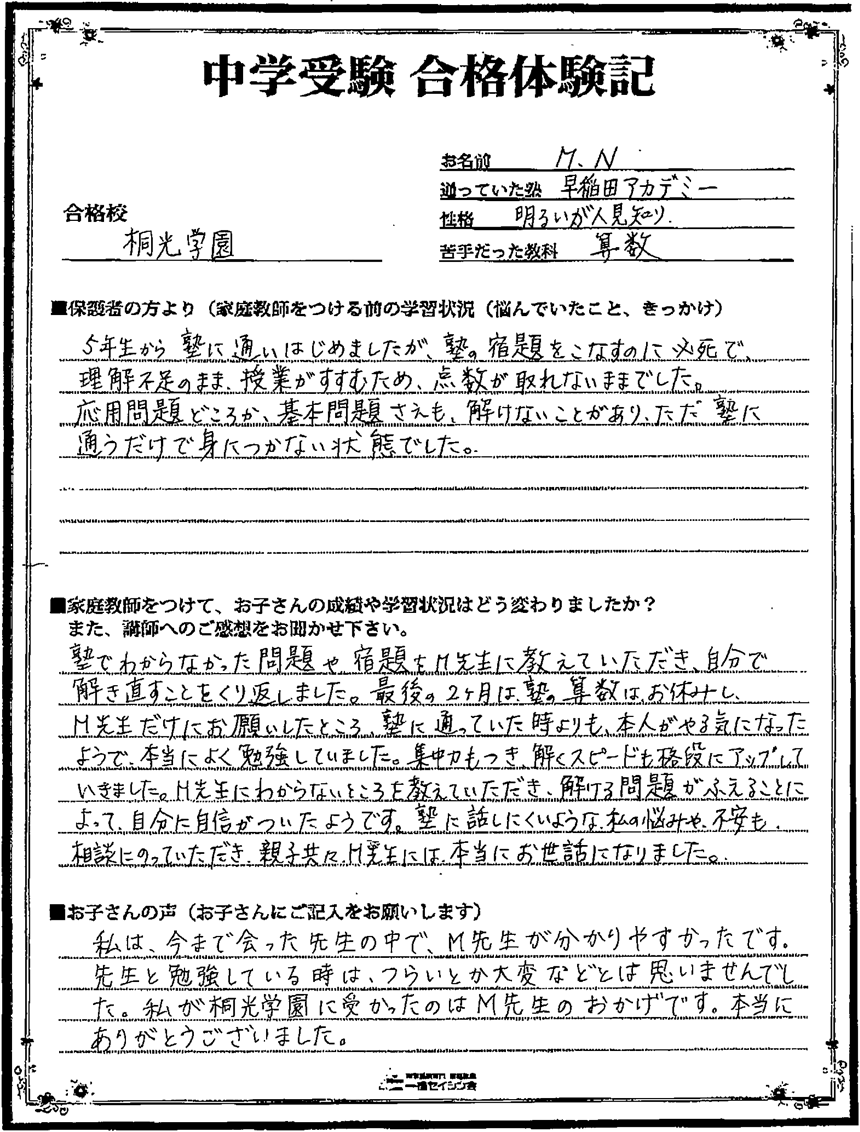 中学受験 合格体験記
お名前 M.N
通っていた塾 早稲田アカデミー
性格 明るいが人見知り.
苦手だった教科 算数
合格校
桐光学園
■保護者の方より（家庭教師をつける前の学習状況（悩んでいたこと、きっかけ）
5年生から 塾に通いはじめましたが、塾の宿題をこなすのに必死で、
理解不足のまま、授業がすすむため、点数が取れないままでした。
応用問題どころか、基本問題さえも、解けないことがあり、ただ塾に
通うだけで身につかない状態でした。
■家庭教師をつけて、お子さんの成績や学習状況はどう変わりましたか？
また、講師へのご感想をお聞かせ下さい。
塾でわからなかった問題や宿題をM先生に教えていただき、自分で
解き直すことをくり返しました。最後の2ヶ月は、塾の算数は、お休みし、
M先生だけにお願いしたところ、塾に通っていた時よりも、本人がやる気になった
ようで、本当によく勉強していました。集中力もつき、解くスピードも格段にアップして
いきました。M先生にわからないところを教えていただき、解ける問題がふえることに
よって、自分に自信がついたようです。塾に話しにくいような、私の悩みや、不安も、
相談にのっていただき、親子共々、M先生には、本当にお世話になりました。
■お子さんの声（お子さんにご記入をお願いします）
私は、今まで会った先生の中で、M先生が分かりやすかったです。
先生と勉強している時は、つらいとか大変などとは思いませんでし
た。私が桐光学園に受かったのはM先生のおかげです。本当に
ありがとうございました。
一橋セイシン会